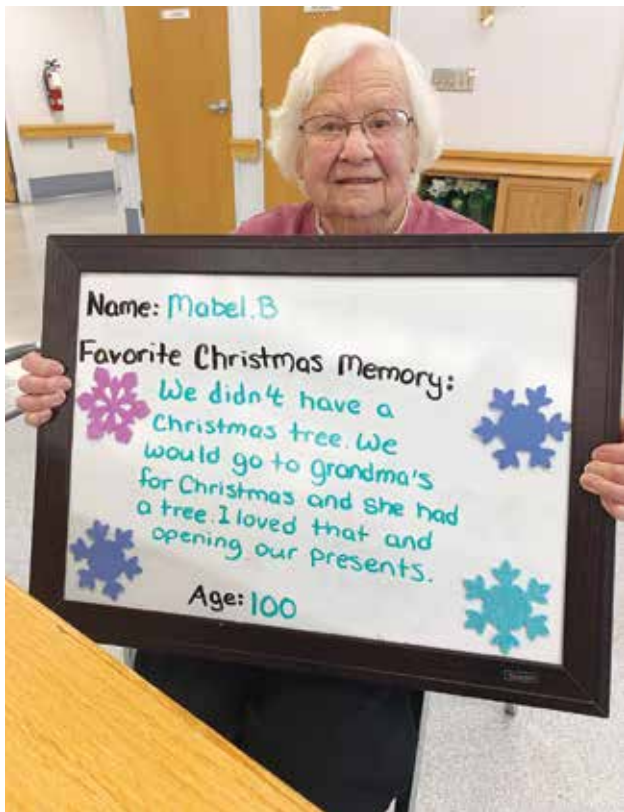 Name: Mabel.B
Favorite Christmas Memory:
We didn't have a
Christmas tree. We
would go to grandma's
for Christmas and she had
a tree. I loved that and
opening our presents.
Age: 100